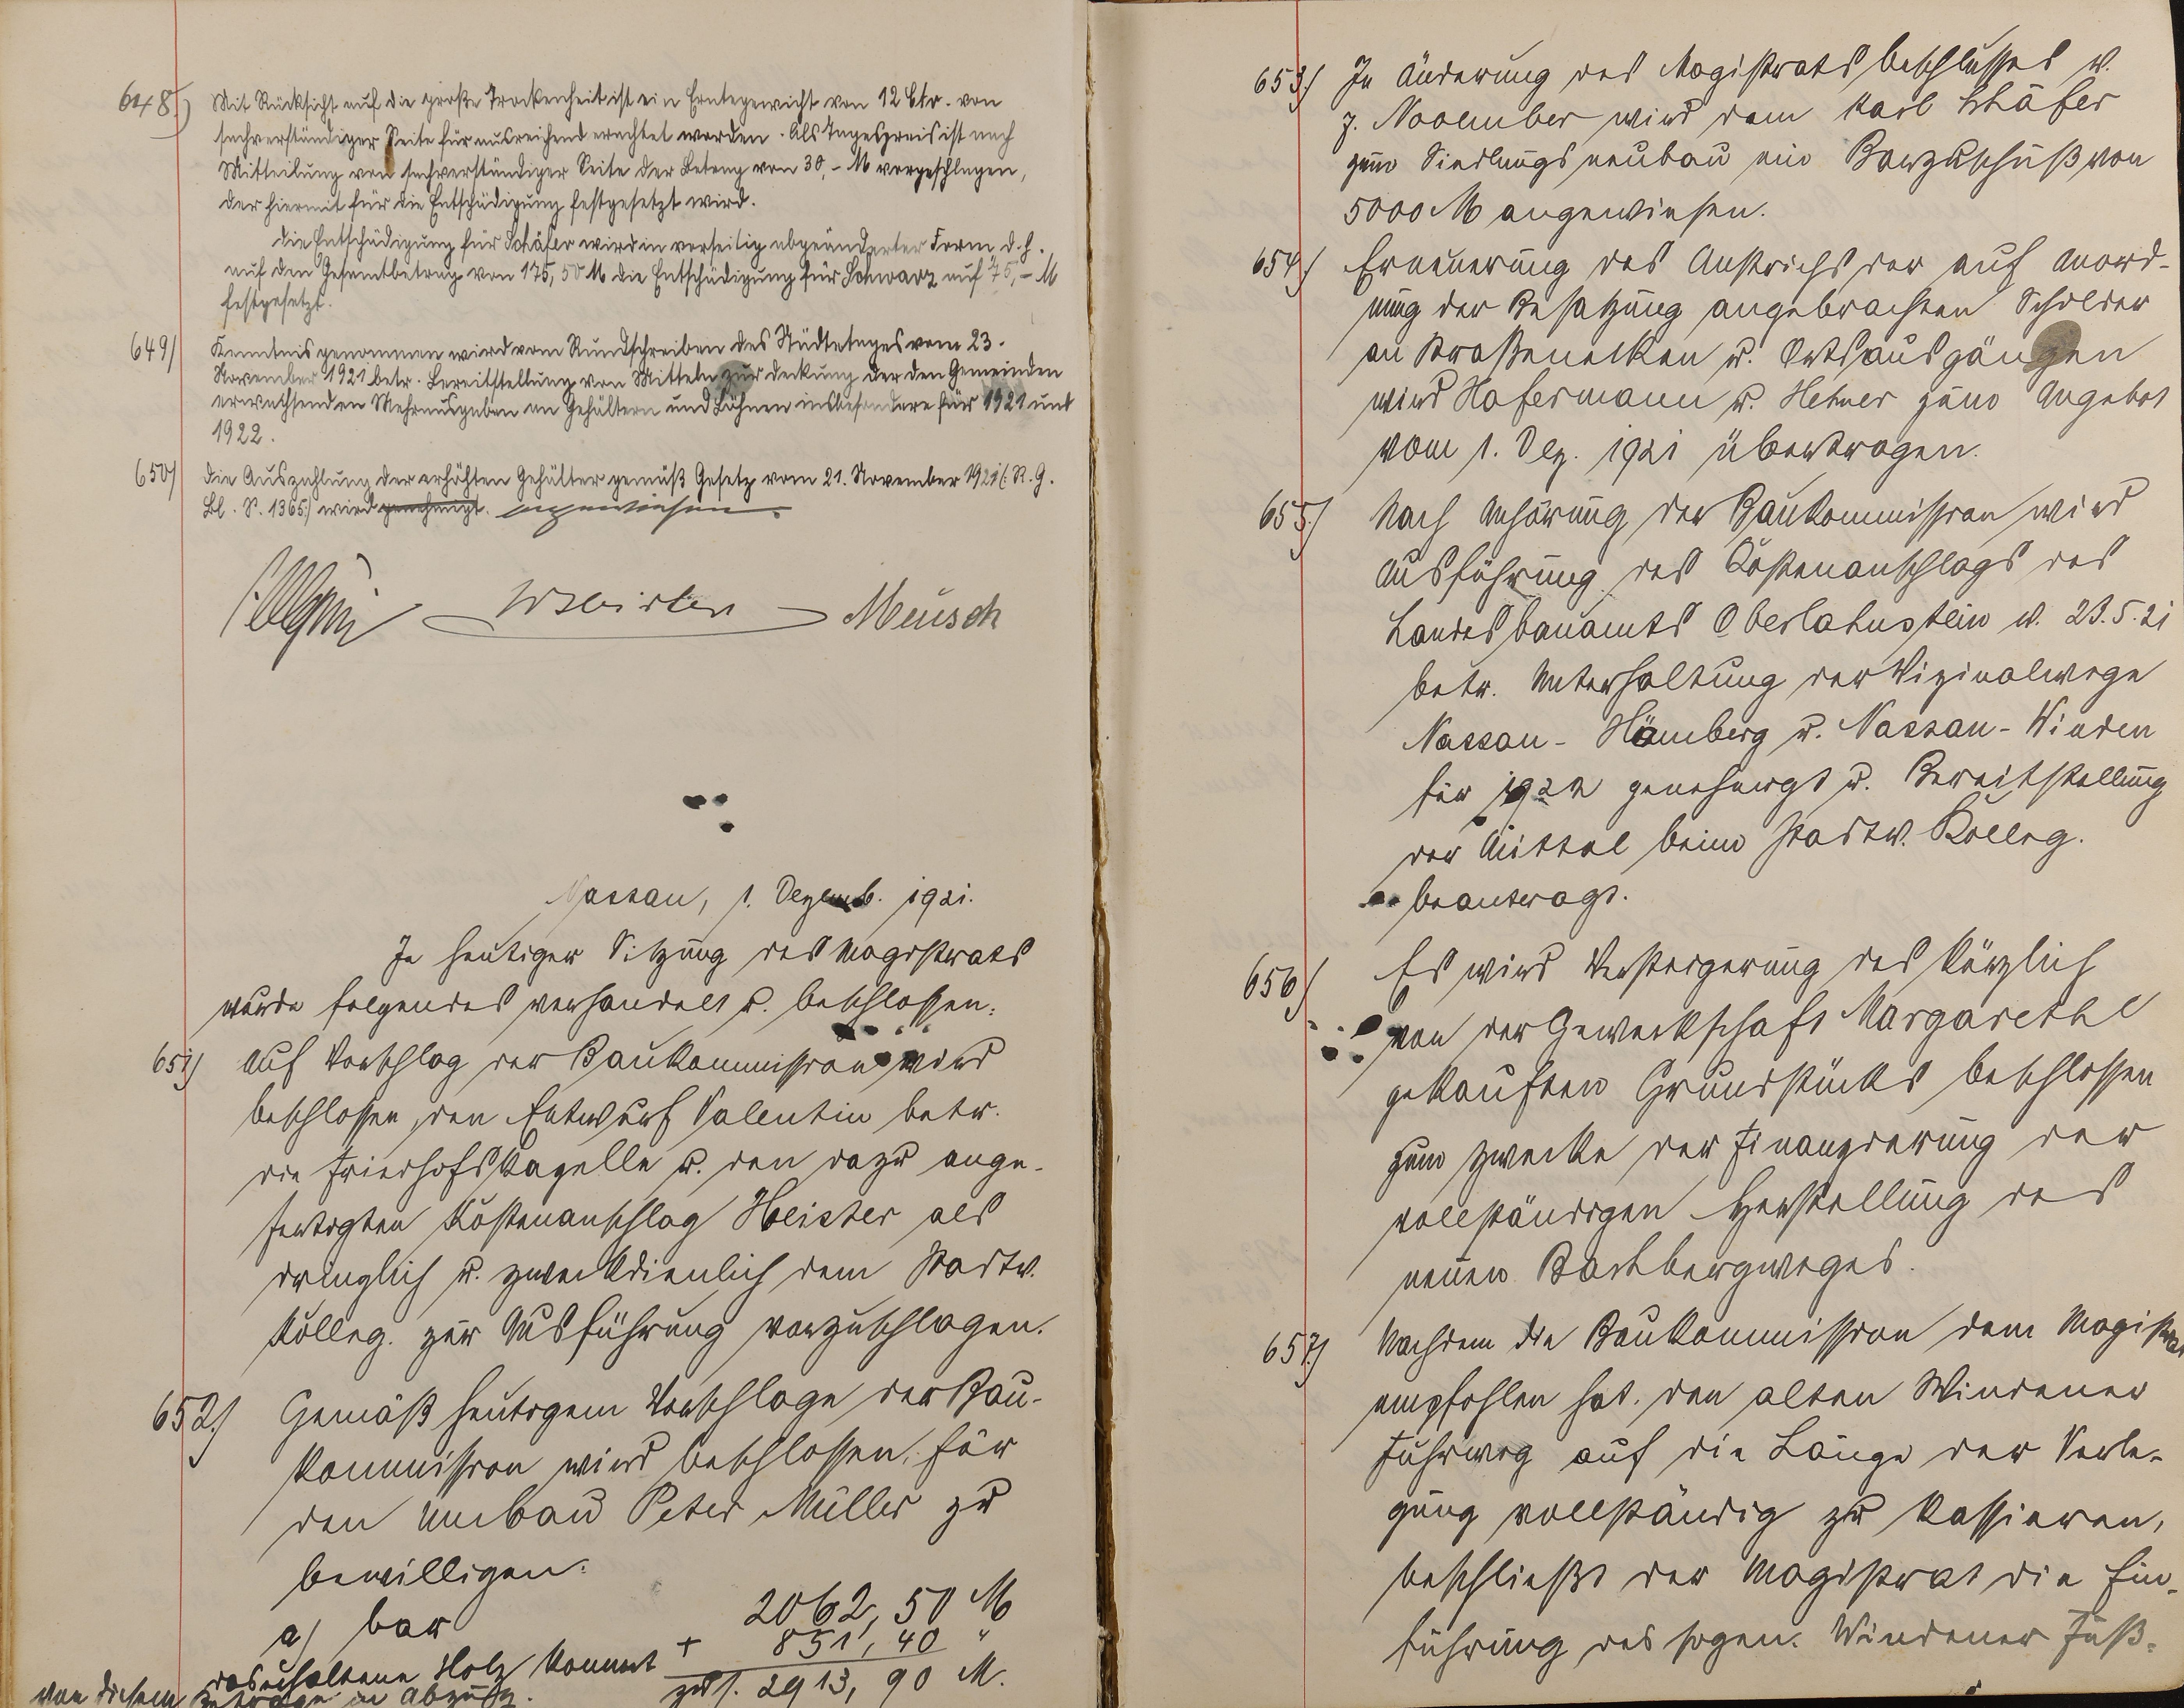 648.) Mit Rücksicht auf die große Trockenheit ist ein Erntegewicht von 12 Ctr. von
sachverständiger Seite für ausreichend erachtet worden. Als Tagespreis ist nach
Mitteilung von sachverständiger Seite der Betrag von 30,- M vorgeschlagen,
der hiermit für die Entschädigung festgesetzt wird.
Die Entschädigung für Schäfer wird in vorseitig abgeänderter Form, d.h.
auf den Gesamtbetrag von 175,50 M die Entschädigung für Schwarz auf 75,- M
festgesetzt.
649) Kenntnis genommen wird vom Rundschreiben des Städtetages vom 23.
November 1921 betr. Bereitstellung von Mitteln zur Deckung der den Gemeinden
erwachsenden Mehrausgaben an Gehältern und Löhnen insbesondere für 1921 und
1922.
650) Die Auszahlung der erhöhten Gehälter gemäß Gesetz vom 21. November 1921 (: R.G.
Bl. S. 1365:) wird genehmigt. angewiesen.
Meusch
Nassau, 1. Dezemb. 1921.
In heutiger Sitzung des Magistrats
wurde folgendes verhandelt u. beschlossen:
651) Auf Vorschlag der Baukommission wird
beschlossen, den Entwurf Valentin betr.
die Friedhofskapelle u. den dazu ange-
fertigten Kostenanschlag Heister als
dringlich u. zweckdienlich dem Stadtv.
Kolleg. zur Ausführung vorzuschlagen.
652.) Gemäß heutigem Vorschlage der Bau-
kommission wird beschlossen, für
den Umbau Peter Müller zu
bewilligen:
a) bar 2062,50 M
+ 851,40 "
das erhaltene Holz kommt zus. 2913,90 M.
von diesem Betrage in Abzug.
653.) In Änderung des Magistratsbeschlusses v.
7. November wird dem Karl Schäfer
zum Siedlungsneubau ein Barzuschuß von
5000 M angewiesen.
654.) Erneuerung des Anstrichs der auf Anord-
nung der Besatzung angebrachten Schilder
an Straßenecken u. Ortsausgängen
wird Hafermann u. Hehner zum Angebot
vom 1. Dez. 1921 übertragen.
655.) Nach Anhörung der Baukommission wird
Ausführung des Kostenanschlags des
Landesbauamts Oberlahnstein v. 23.5.21
betr. Unterhaltung der Vizinalwege
Nassau-Hömberg u. Nassau-Winden
für 1922 genehmigt u. Bereitstellung
der Mittel beim Stadtv. Kolleg.
beantragt.
656) Es wird Versteigerung des kürzlich
von der Gewerkschaft Margarethe
gekauften Grundstücks beschlossen
zum Zwecke der Finanzierung der
vollständigen Herstellung des
neuen Bachbergweges.
657.) Nachdem die Baukommission dem Magistrat
empfohlen hat, den alten Windener
Fuhrweg auf die Länge der Verle-
gung vollständig zu kassieren,
beschließt der Magistrat die Ein-
führung des sogen. Windener Fuß-